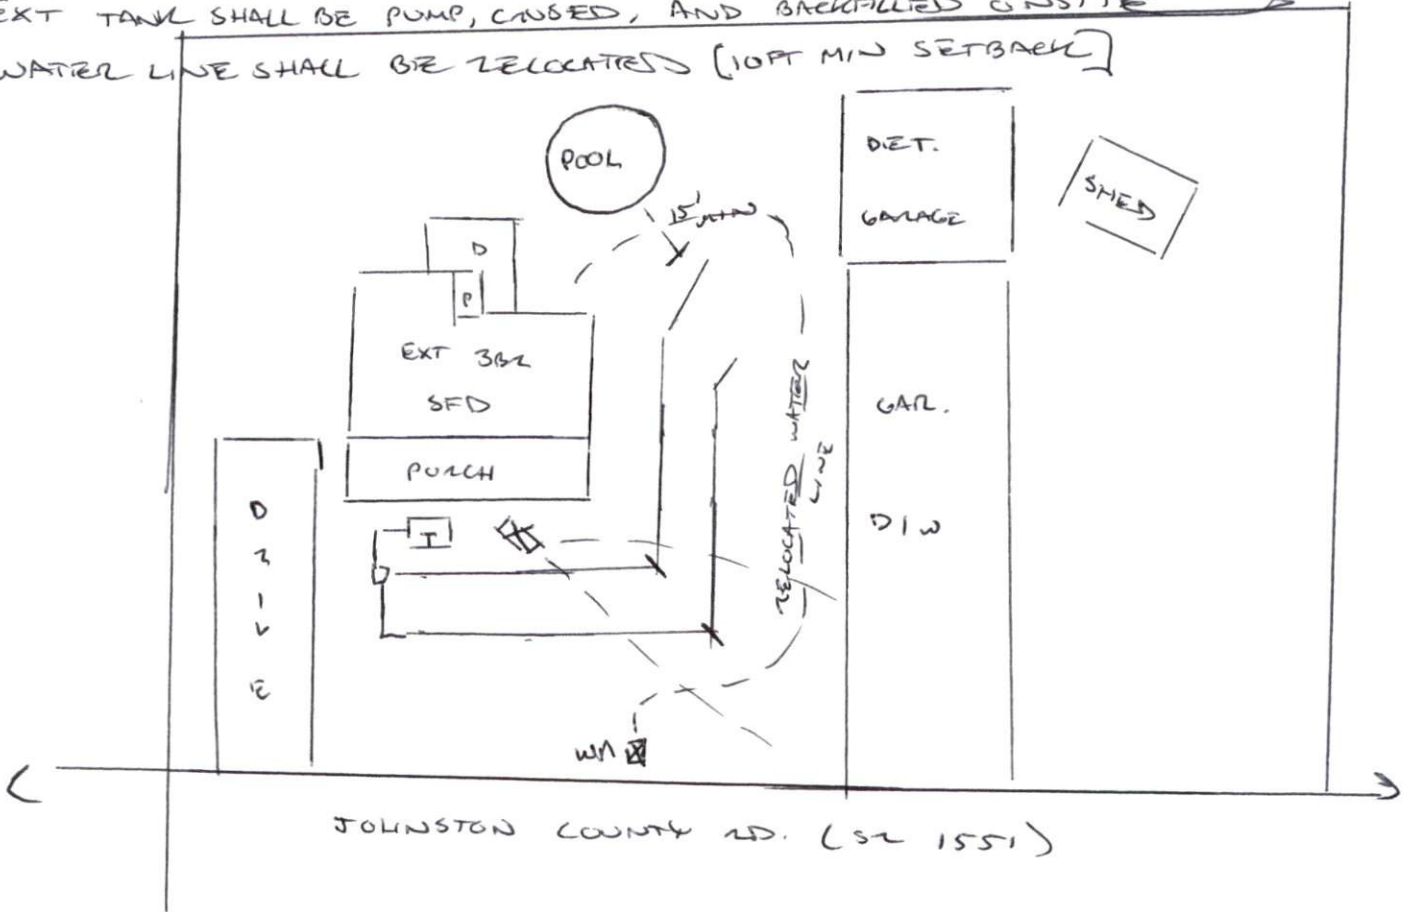 EXT TANK SHALL BE PUMP, CRUSED, AND BACKFILLED ONSITE
WATER LINE SHALL BE RELOCATED [10FT MIN SETBACK]
POOL
15' MIN
DET.
GARAGE
SHED
D
P
EXT 3BR
SFD
PORCH
DRIVE
T
RELOCATED WATER
LINE
GAR.
D/W
WM
JOHNSTON COUNTY RD. (SR 1551)